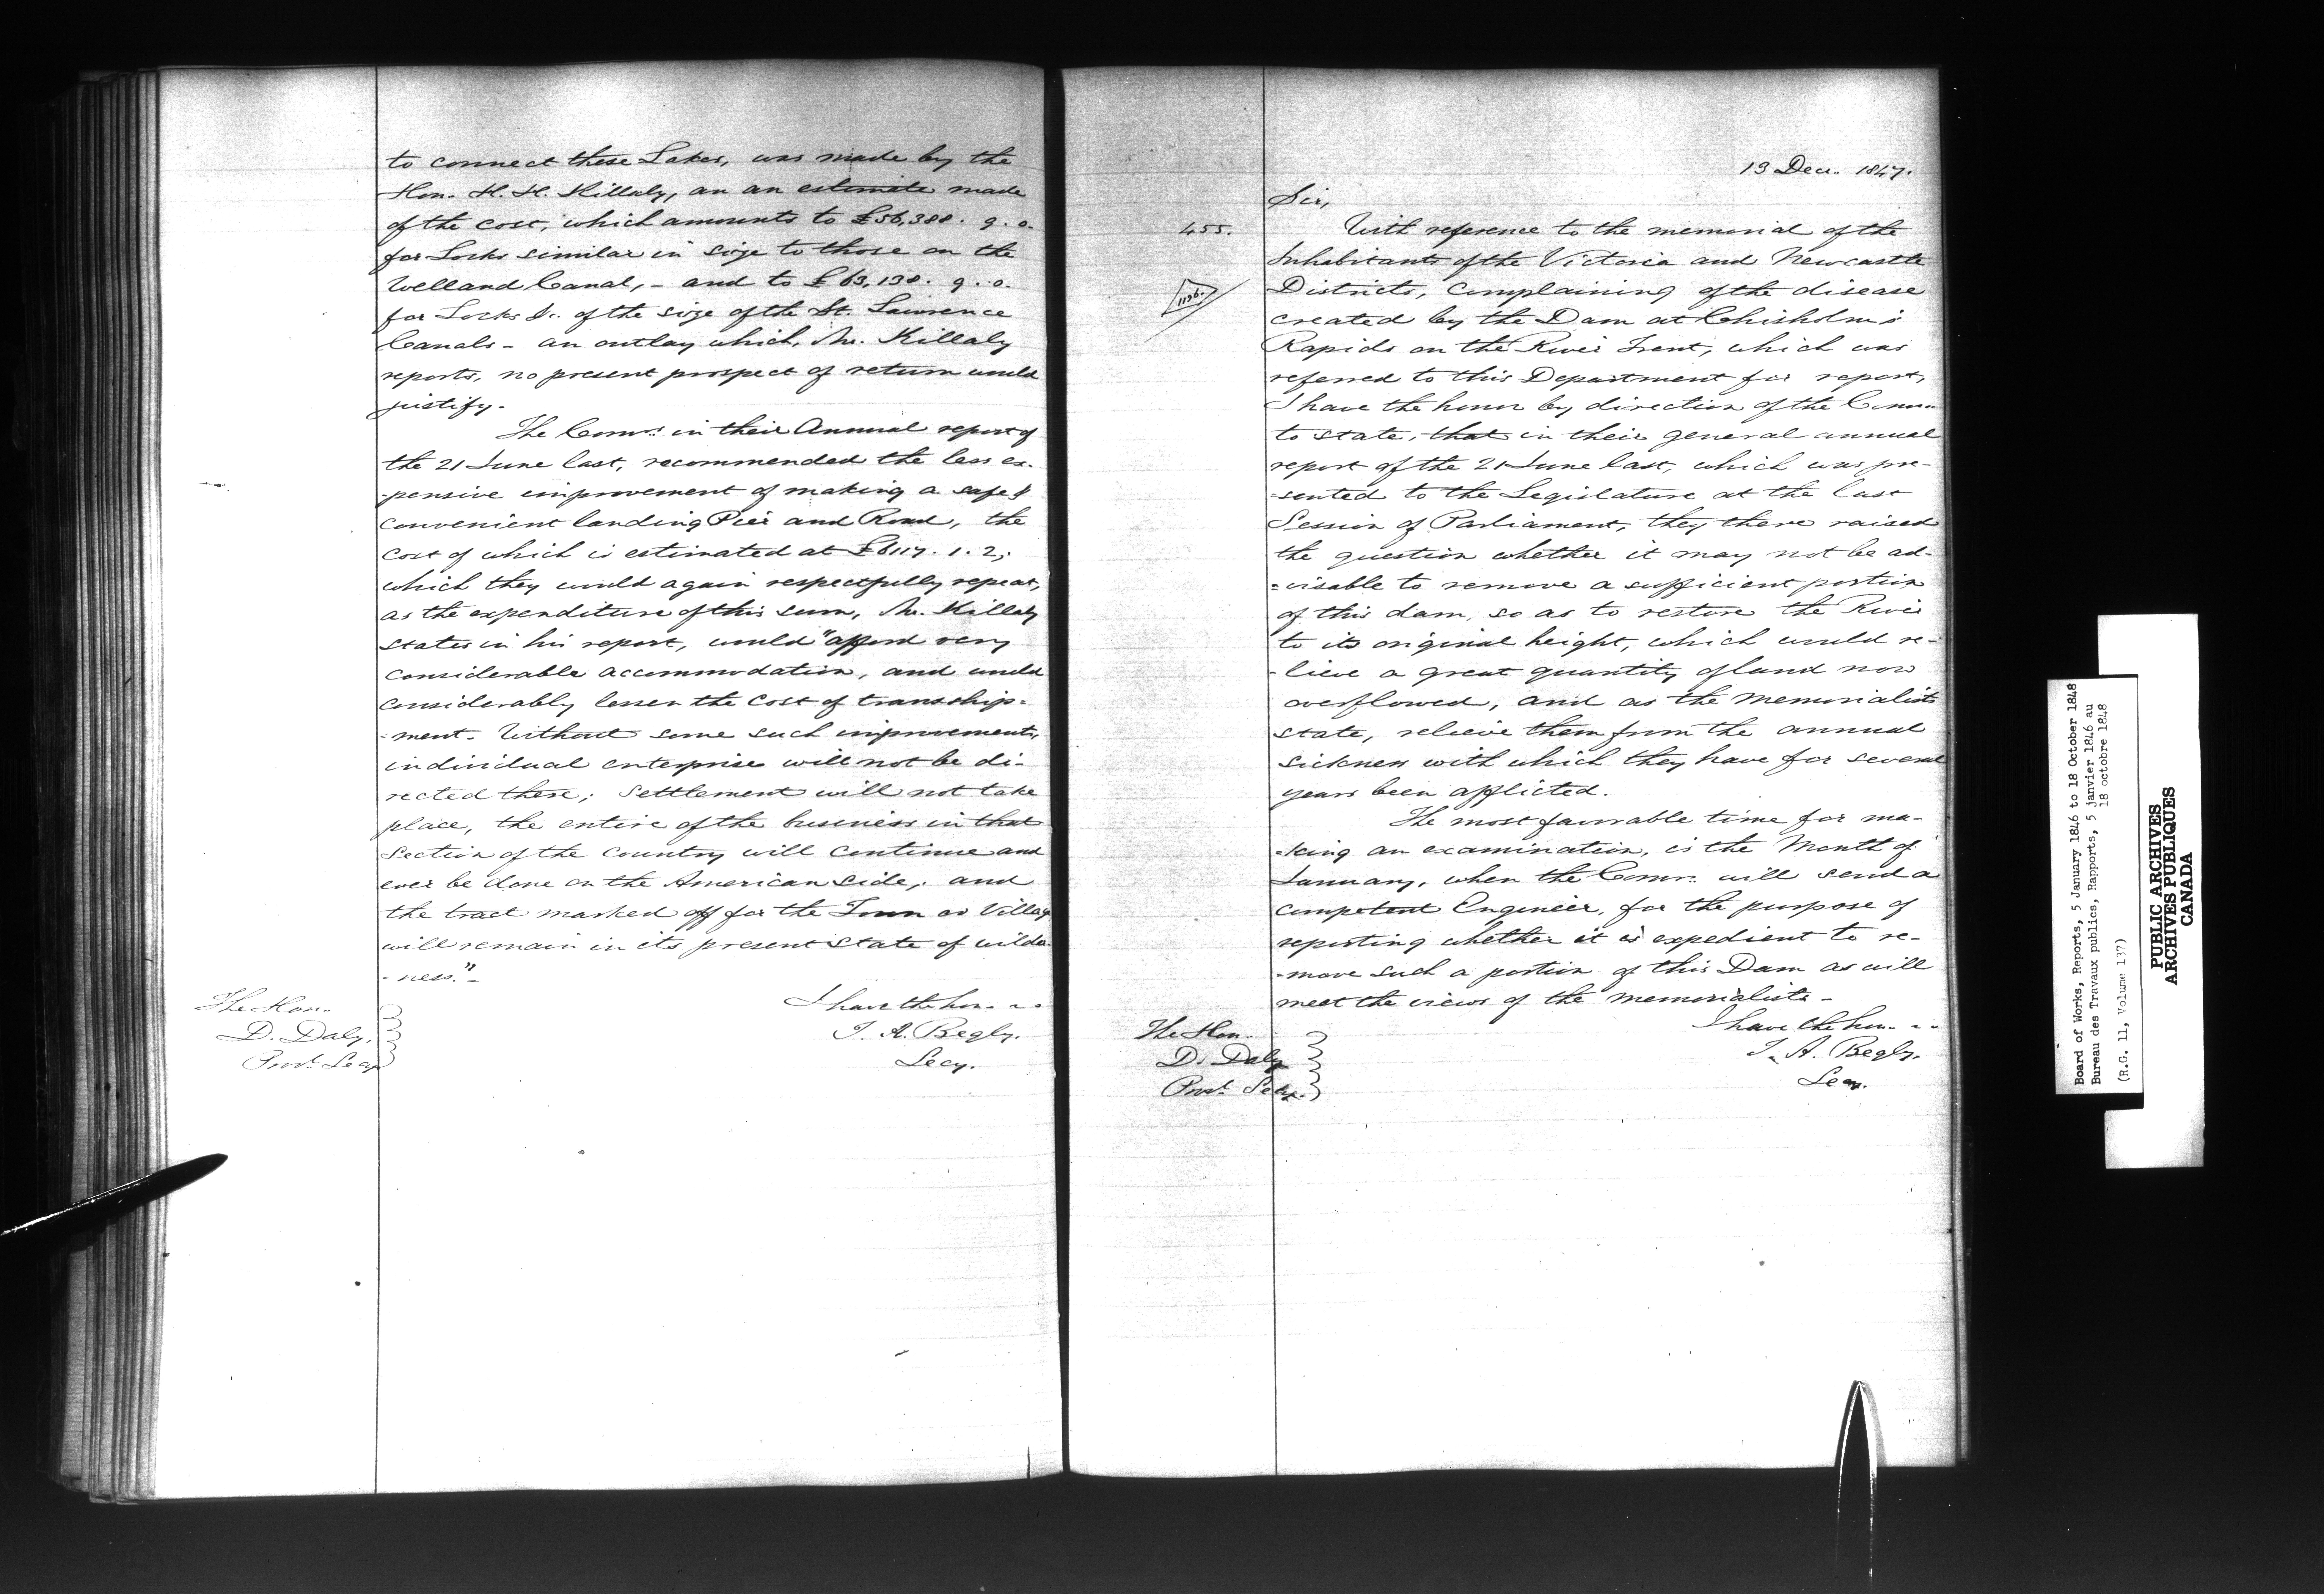 to connect these Lakes, was made by the
Hon. H. H. Killaly, an an estimate made
of the cost, which amounts to £56,388. 9. 0.
for Locks similar in size to those on the
Welland Canal, - and to £63,138. 9. 0.
for Locks &c. of the size of the St. Lawrence
Canals - an outlay which, Mr. Killaly
reports, no present prospect of return would
justify.
The Comrs. in their Annual report of
the 21 June last, recommended the less ex-
-pensive improvement of making a safe &
convenient landing Pier and Road, the
cost of which is estimated at £6117. 1. 2;
which they would again respectfully repeat,
as the expenditure of this sum, Mr. Killaly
states in his report, would "afford very
considerable accommodation, and would
considerably lessen the cost of transship=
=ment. Without some such improvements,
individual enterprise will not be di-
rected there; Settlement will not take
place, the entire of the business in that
section of the country will continue and
ever be done on the American side, and
the tract marked off for the Town or Village
will remain in its present state of wilder-
-ness."-
I have the hon.
T. A. Begly.
Secy.
The Hon.
D. Daly,
Provl. Secy
13 Dec. 1847.
Sir,
455.
1136.
With reference to the memorial of the
Inhabitants of the Victoria and Newcastle
Districts, complaining of the disease
created by the Dam at Chisholm's
Rapids on the River Trent, which was
referred to this Department for report,
I have the honor by direction of the Comrs.
to state, that in their general annual
report of the 21 June last, which was pre-
=sented to the Legislature at the last
Session of Parliament, they there raised
the question whether it may not be ad-
=visable to remove a sufficient portion
of this dam, so as to restore the River
to its original height, which would re-
-lieve a great quantity of land now
overflowed, and as the memorialists
state, relieve them from the annual
sickness with which they have for several
years been afflicted.
The most favorable time for ma-
-king an examination, is the Month of
January, when the Comrs. will send a
competent Engineer, for the purpose of
reporting whether it is expedient to re-
-move such a portion of this Dam as will
meet the views of the memorialists -
I have the hon.
T. A. Begly.
Secy.
The Hon.
D. Daly
Provl. Secy.
Board of Works, Reports, 5 January 1846 to 18 October 1848
Bureau des Travaux publics, Rapports, 5 janvier 1846 au
18 octobre 1848
(R.G. 11, Volume 137)
PUBLIC ARCHIVES
ARCHIVES PUBLIQUES
CANADA